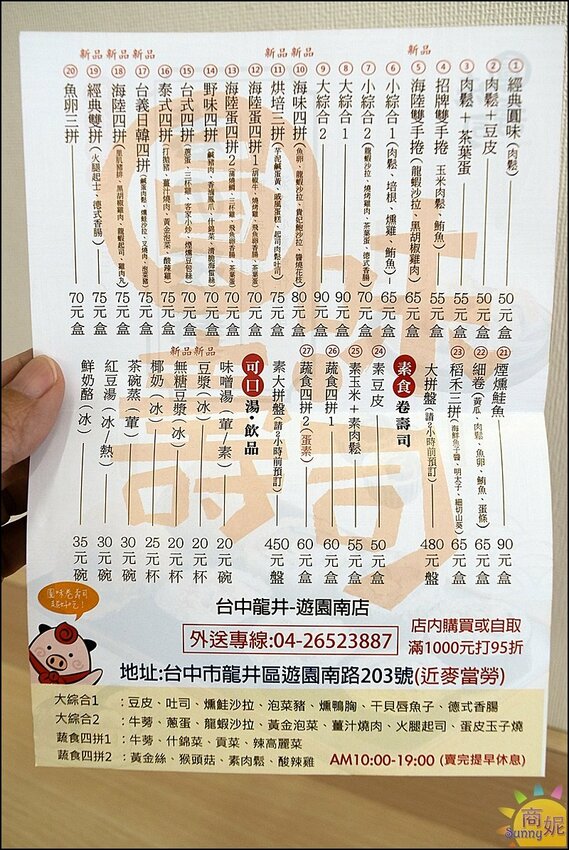 新品
新品 新品
新品 新品 新品
① 經典圓味(肉鬆) 50元/盒
② 肉鬆+豆皮 50元/盒
③ 肉鬆+茶葉蛋 55元/盒
④ 招牌雙手捲(玉米肉鬆、鮪魚) 55元/盒
⑤ 海陸雙手捲(龍蝦沙拉、黑胡椒雞肉) 65元/盒
⑥ 小綜合1(肉鬆、培根、燻雞、鮪魚) 65元/盒
⑦ 小綜合2(龍蝦沙拉、燒烤雞肉、茶葉蛋、德式香腸) 70元/盒
⑧ 大綜合1 90元/盒
⑨ 大綜合2 90元/盒
⑩ 海味四拼(魚卵、龍蝦沙拉、貴妃鮑沙拉、醬燒花枝) 80元/盒
⑪ 烘培三拼(芋泥鹹蛋黃、戚風蛋糕、起司肉鬆吐司) 75元/盒
⑫ 海陸蛋四拼1(胡椒牛、燒烤雞、飛魚卵香腸、茶葉蛋) 70元/盒
⑬ 海陸蛋四拼2(蒲燒鯛、三杯雞、飛魚卵香腸、茶葉蛋) 70元/盒
⑭ 野味四拼(鹹豬肉、香滷鳳爪、什錦菜、清脆海蜇絲) 70元/盒
⑮ 台式四拼(蔥蛋、三杯雞、客家小炒、煙燻豆包絲) 70元/盒
⑯ 泰式四拼(打拋豬、薑汁燒肉、黃金泡菜、酸辣雞) 70元/盒
⑰ 台義日韓四拼(鹹蛋肉鬆、燻鮭沙拉、叉燒肉、泡菜豬) 75元/盒
⑱ 海陸四拼(里肌豬排、黑胡椒雞肉、龍蝦起司、雞肉丸) 75元/盒
⑲ 經典雙拼(火腿起士、德式香腸) 75元/盒
⑳ 魚卵三拼 70元/盒
㉑ 煙燻鮭魚 90元/盒
㉒ 細卷(黃瓜、肉鬆、魚卵、鮪魚、蛋條) 65元/盒
㉓ 稻禾三拼(海鮮魚子醬、明太子、細切山葵) 65元/盒
大拼盤(請2小時前預訂) 480元/盤
素食卷壽司
㉔ 素豆皮 50元/盒
㉕ 素玉米+素肉鬆 55元/盒
㉖ 蔬食四拼1 60元/盒
㉗ 蔬食四拼2(蛋素) 60元/盒
素大拼盤(請2小時前預訂) 450元/盤
可口湯·飲品
新品 新品
味噌湯(葷/素) 20元/碗
豆漿(冰) 20元/杯
無糖豆漿(冰) 20元/杯
椰奶(冰) 25元/杯
茶碗蒸(葷) 30元/碗
紅豆湯(冰/熱) 30元/碗
鮮奶酪(冰) 35元/碗
圓味卷壽司
超好吃!
台中龍井-遊園南店
外送專線:04-26523887
店內購買或自取
滿1000元打95折
地址:台中市龍井區遊園南路203號(近麥當勞)
大綜合1:豆皮、吐司、燻鮭沙拉、泡菜豬、燻鴨胸、干貝唇魚子、德式香腸
大綜合2:牛蒡、蔥蛋、龍蝦沙拉、黃金泡菜、薑汁燒肉、火腿起司、蛋皮玉子燒
蔬食四拼1:牛蒡、什錦菜、貢菜、辣高麗菜
蔬食四拼2:黃金絲、猴頭菇、素肉鬆、酸辣雞
AM10:00-19:00 (賣完提早休息)
商妮
Sunny